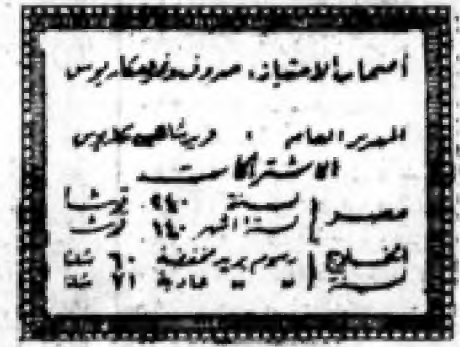 أصحاب الامتياز: صروف ونمر ومكاريوس
المدير العام : فريد شاهين مكاريوس
الاشتراكات
مصر } لسنة ٢٤٠ قرشاً
لستة اشهر ١٤٠ قرش
الخارج { رسوم بريد مخفضة ٦٠ شلناً
لسنة { » » عادية ٧١ شلناً